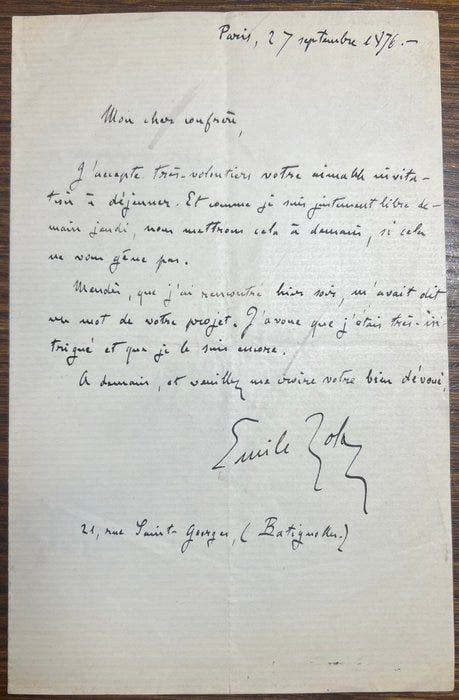 Paris, 27 septembre 1876.–
Mon cher confrère,
J'accepte très-volontiers votre aimable invita-
tion à déjeuner. Et comme je suis justement libre de-
main jeudi, nous mettrons cela à demain, si cela
ne vous gêne pas.
Mendès, que j'ai rencontré hier soir, m'avait dit
un mot de votre projet. J'avoue que j'étais très-in
trigué et que je le suis encore.
A demain, et veuillez me croire votre bien dévoué,
Emile Zola
21, rue Saint-Georges, (Batignolles.)